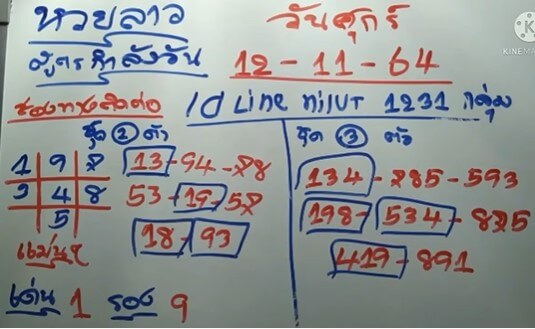 หวยลาว
วันศุกร์
สูตรกำลังวัน
12-11-64
ช่องทางติดต่อ
Id Line
1231 กลุ่ม
ชุด 2 ตัว
ชุด 3 ตัว
1 9 8
13-94-28
134-285-593
3 4 8
53-19-58
198-534-825
5
18-93
419-891
แม่นๆ
เด่น 1 รอง 9
KINEMA